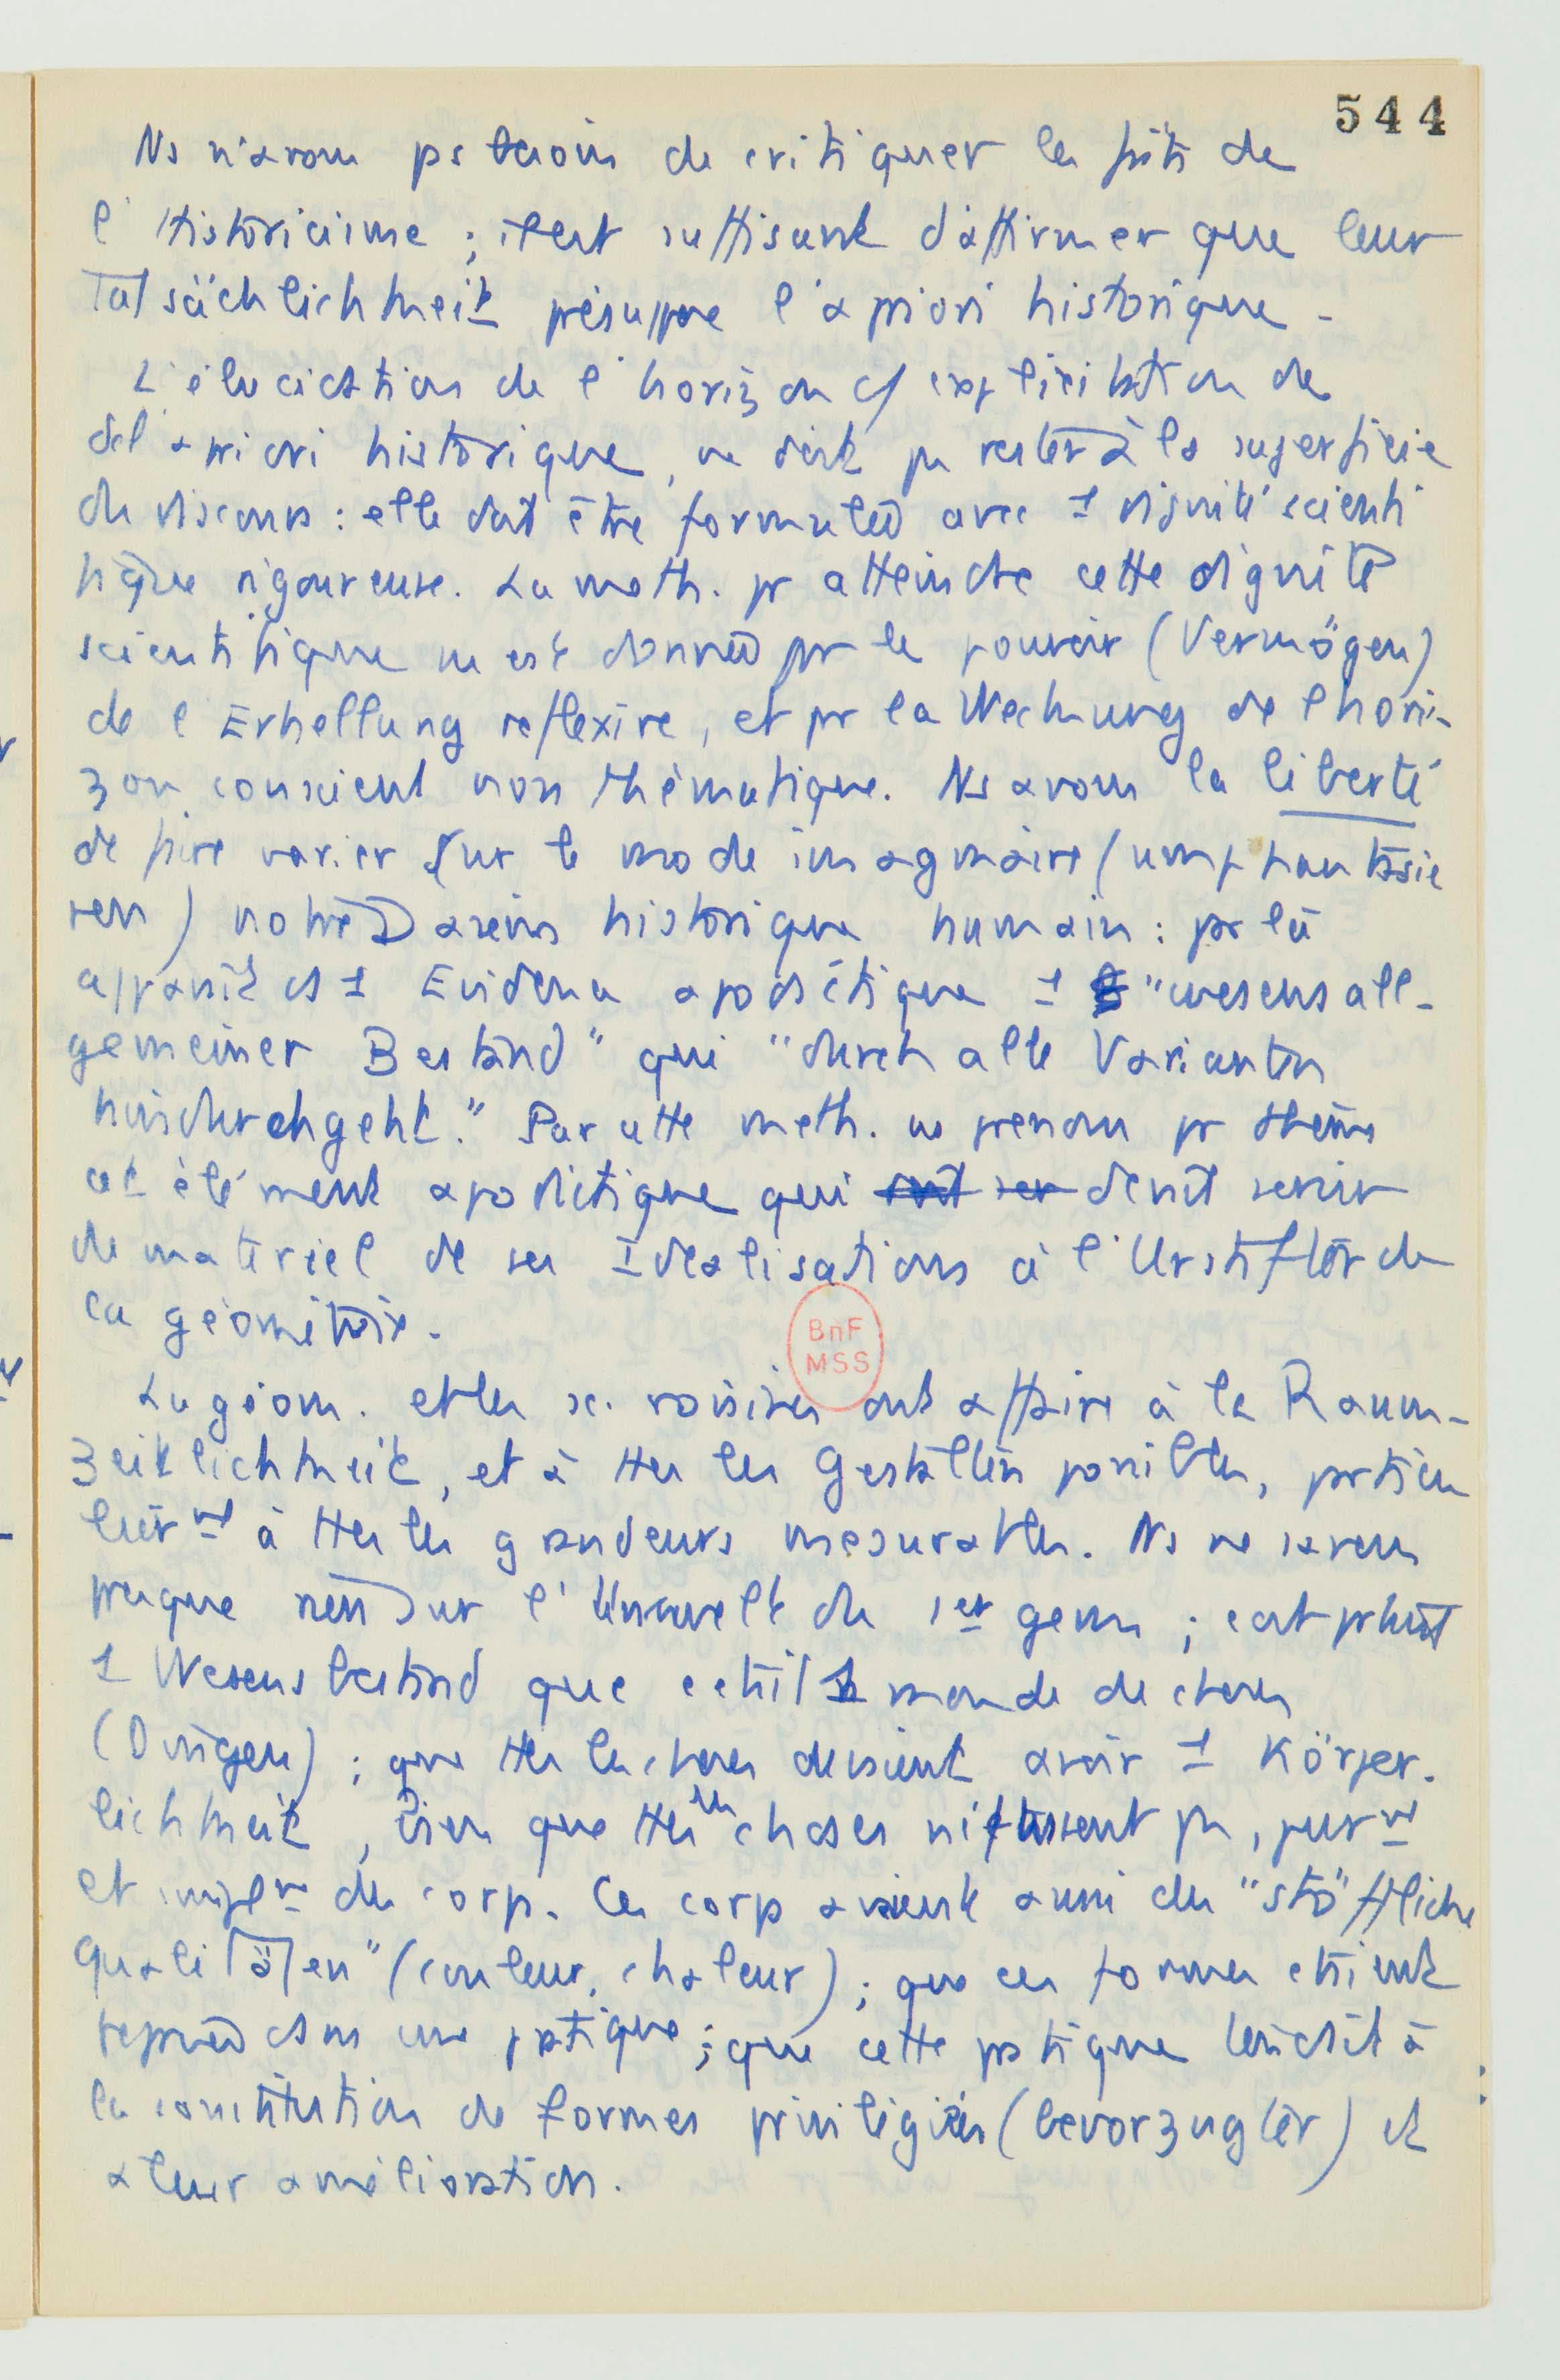 544
Ns n'avons ps besoin de critiquer les faits de
l'Historicisme ; il est suffisant d'affirmer que leur
Tatsächlichkeit présuppose l'a priori historique.
L'élucidation de l'horizon c/ explicitation de
del'a priori historique, ne doit pas rester à la superficie
du discours : elle doit être formulée avec 1 dignité scienti
fique rigoureuse. La méth. pr atteindre cette dignité
scientifique ns est donnée par le pouvoir (Vermögen)
de l'Erhellung reflexive, et par la Weckung de l'hori-
zon conscient non thématique. Ns avons la liberté
de faire varier sur le mode imaginaire (umphantasie
ren) notre Dasein historique humain : par là
apparait ds 1 Evidence apodictique 1 "wesensall-
gemeiner Bestand" qui "durch alle Varianten
hindurchgeht." Par cette méth. ns prenons pr thème
cet élément apodictique qui devait servir
de matériel de ses Idealisations à l'Urstifter de
la géométrie.
BnF
MSS
La géom. et les sc. voisines ont affaire à la Raum-
zeitlichkeit, et à ttes les Gestalten possibles, particu
lièrmt à ttes les grandeurs mesurables. Ns ne savons
presque rien sur l'Umwelt du 1er géom ; c'est plutôt
1 Wesensbestand que c'était 1 monde de choses
(Dingen) ; que ttes les choses devaient avoir 1 Körper-
lichkeit, bien que ttes les choses ne fussent pas, purmt
et simplmt des corps. Ces corps avaient aussi des "stoffliche
Qualitäten" (couleur, chaleur) ; que ces formes étaient
ds une pratique ; que cette pratique tendait à
la constitution de formes privilégiées (bevorzugter) et
a leur amélioration.